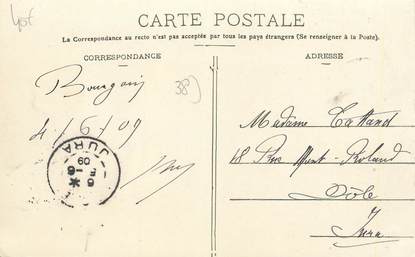 CARTE POSTALE
La Correspondance au recto n'est pas acceptée par tous les pays étrangers (Se renseigner à la Poste).
CORRESPONDANCE
ADRESSE
Bourgoin
38
4/6/09
JURA
6 - 6
09
Madame
48 Rue Mont-Roland
Dôle
Jura